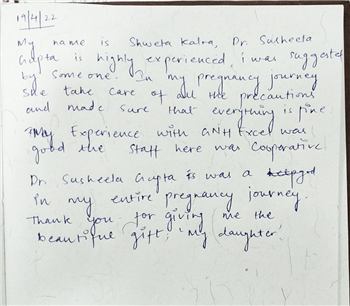 19/4/22
My name is Shweta Kalra, Dr. Susheela
Gupta is highly experienced, i was suggested
by someone. In my pregnancy journey
She take care of all the precautions
and made sure that everything is fine
My Experience with GNH Excel was
good the staff here was Cooperative
Dr. Susheela Gupta is was a
in my entire pregnancy journey.
Thank you for giving me the
beautiful gift. 'My daughter'